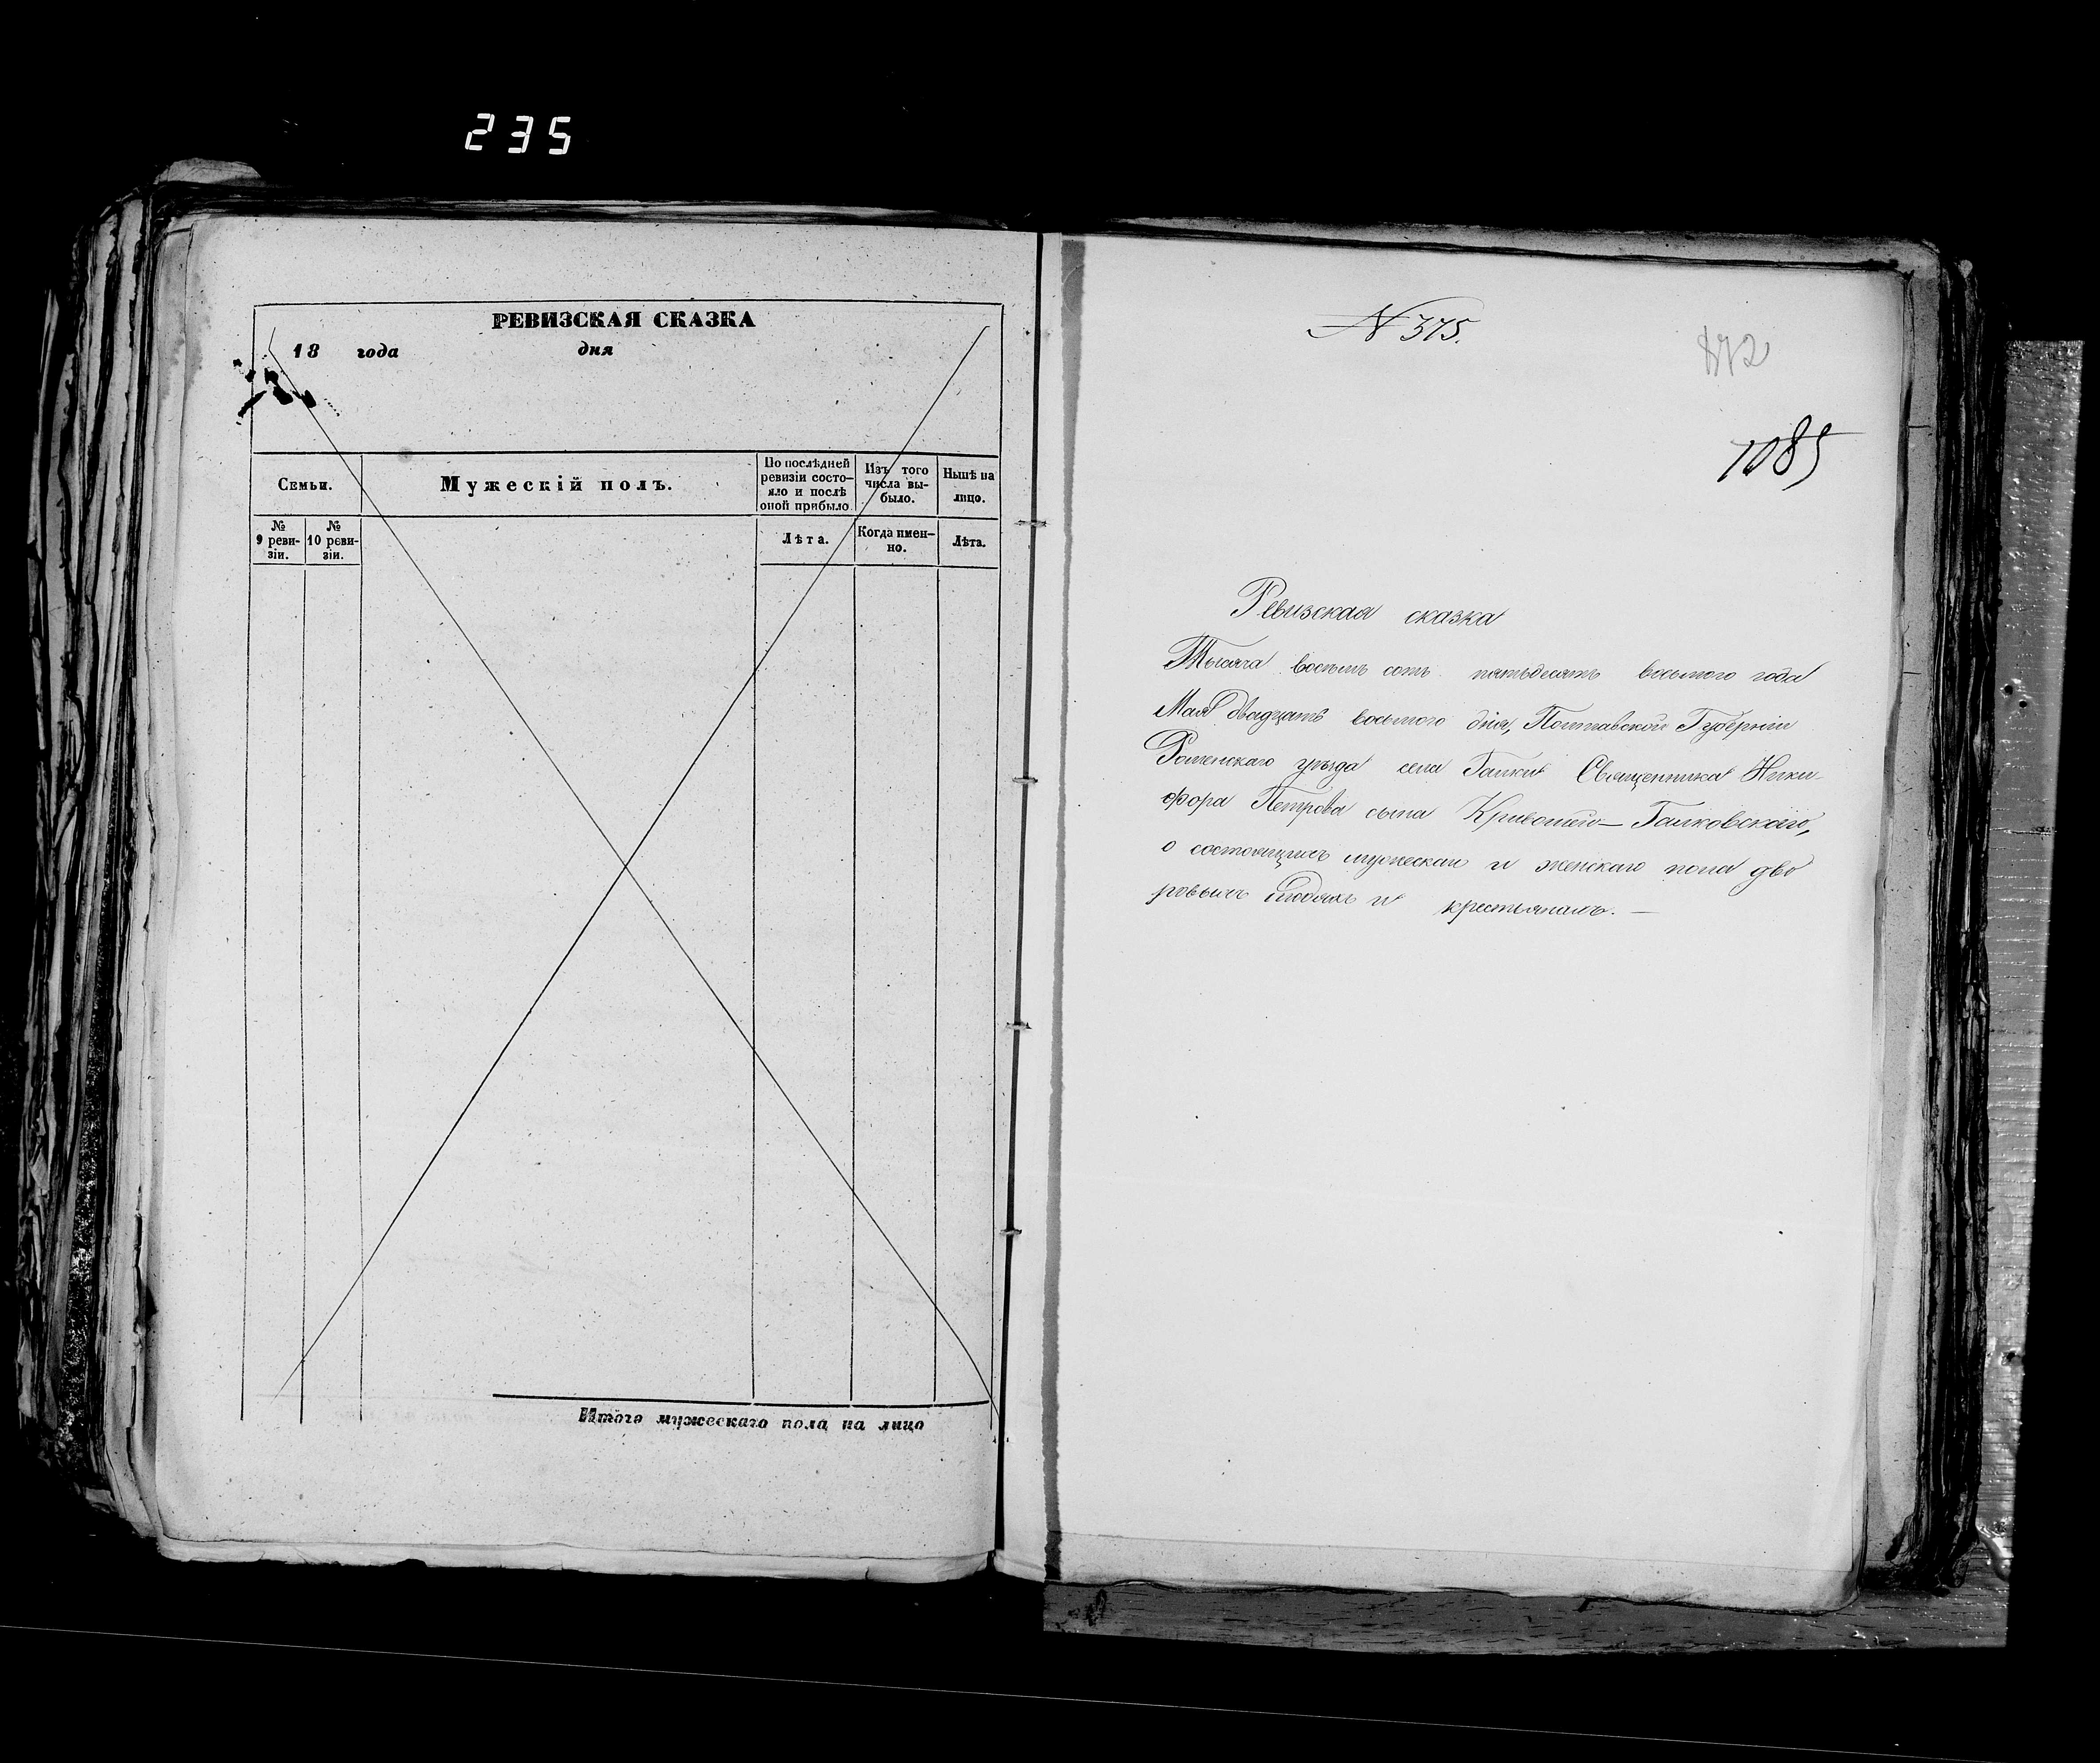 235
РЕВИЗСКАЯ СКАЗКА
18 года дня
Семьи.
Мужескій полъ.
По послѣдней
ревизіи состо-
яло и послѣ
оной прибыло.
Изъ того
числа вы-
было.
Нынѣ на
лицо.
№
9 реви-
зіи.
№
10 реви-
зіи.
Лѣта.
Когда имен-
но.
Лѣта.
Итого мужескаго пола на лицо
N 375.
872
1085
Ревизская сказка
Тысяча восемь сотъ пятьдесятъ восьмого года
Мая двадцать восьмого дня, Полтавской Губерніи
Роменскаго уѣзда села Галки Священника Ники-
фора Петрова сына Кривошіи-Галковскаго,
о состоящихъ мужеска и женскаго пола дво
ровыхъ людяхъ и крестьянахъ. —